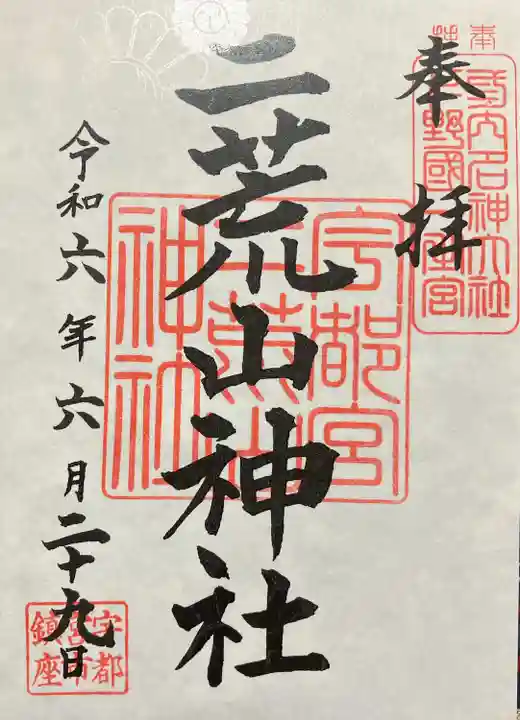 奉拝
二荒山神社
令和六年六月二十九日
式内名神大社
下野國一宮
宇都宮
二荒山
神社
宇都
宮市
鎮座